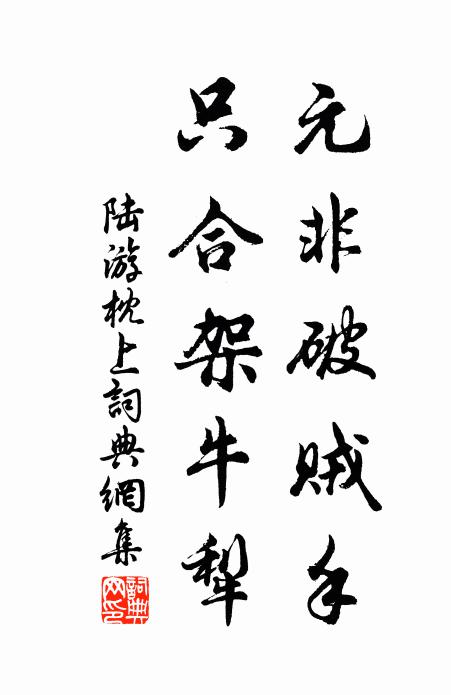 元非破賊手
只合架牛犁
陆游枕上詞典網集
詞典网印